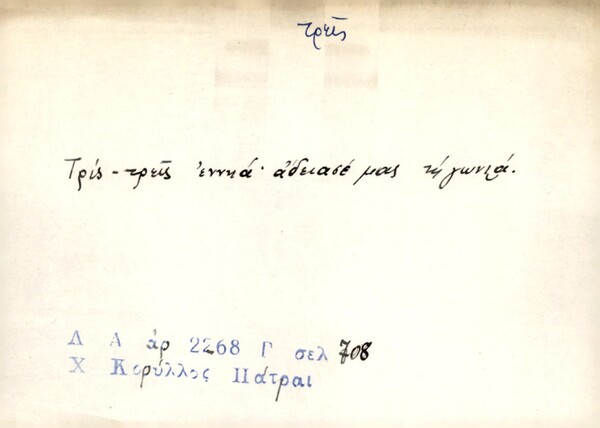 τρεῖς
Τρίς - τρεῖς ἐννηά· ἄδειασέ μας τή γωνιά.
Λ Α ἀρ 2268 Γ σελ 708
Χ Κορύλλος Πάτραι